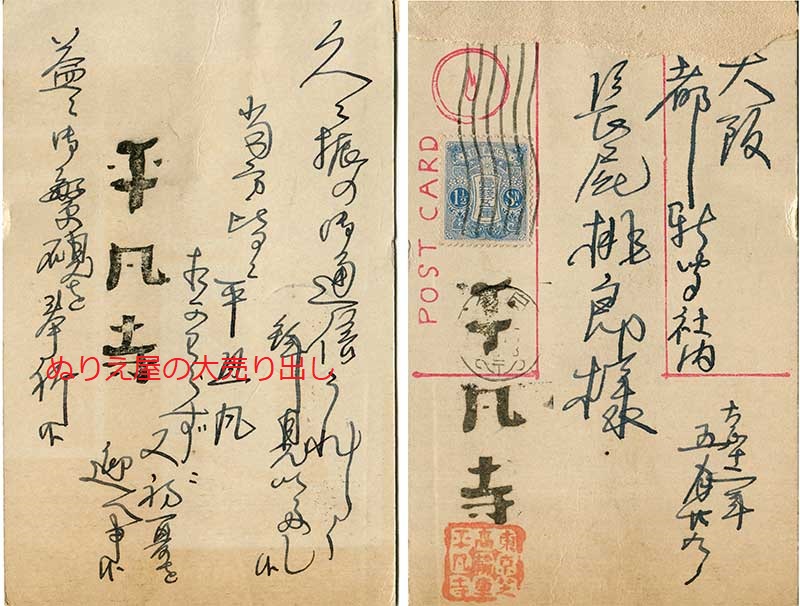 久々振の御通信うれしく
拝見いたし候
当方皆々平
相かわらず
又初夏を
迎へ申候
平凡寺
益々御繁
を奉祈候
ぬりえ屋の大売り出し
大阪
都新聞社内
長尾桃郎様
大正十二年
五月廿九日
POST CARD
1½ Sn
平凡寺
東京芝
高輪車
平凡寺